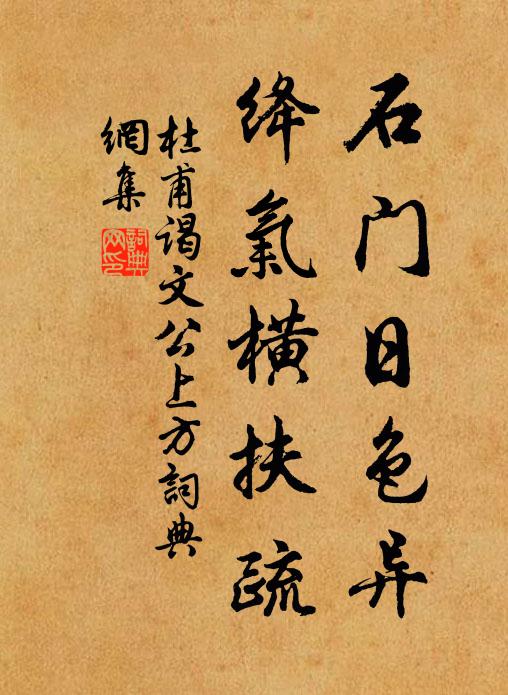 石门日色异
绛氣横扶疏
杜甫谒文公上方詞典
網集
詞典
网印